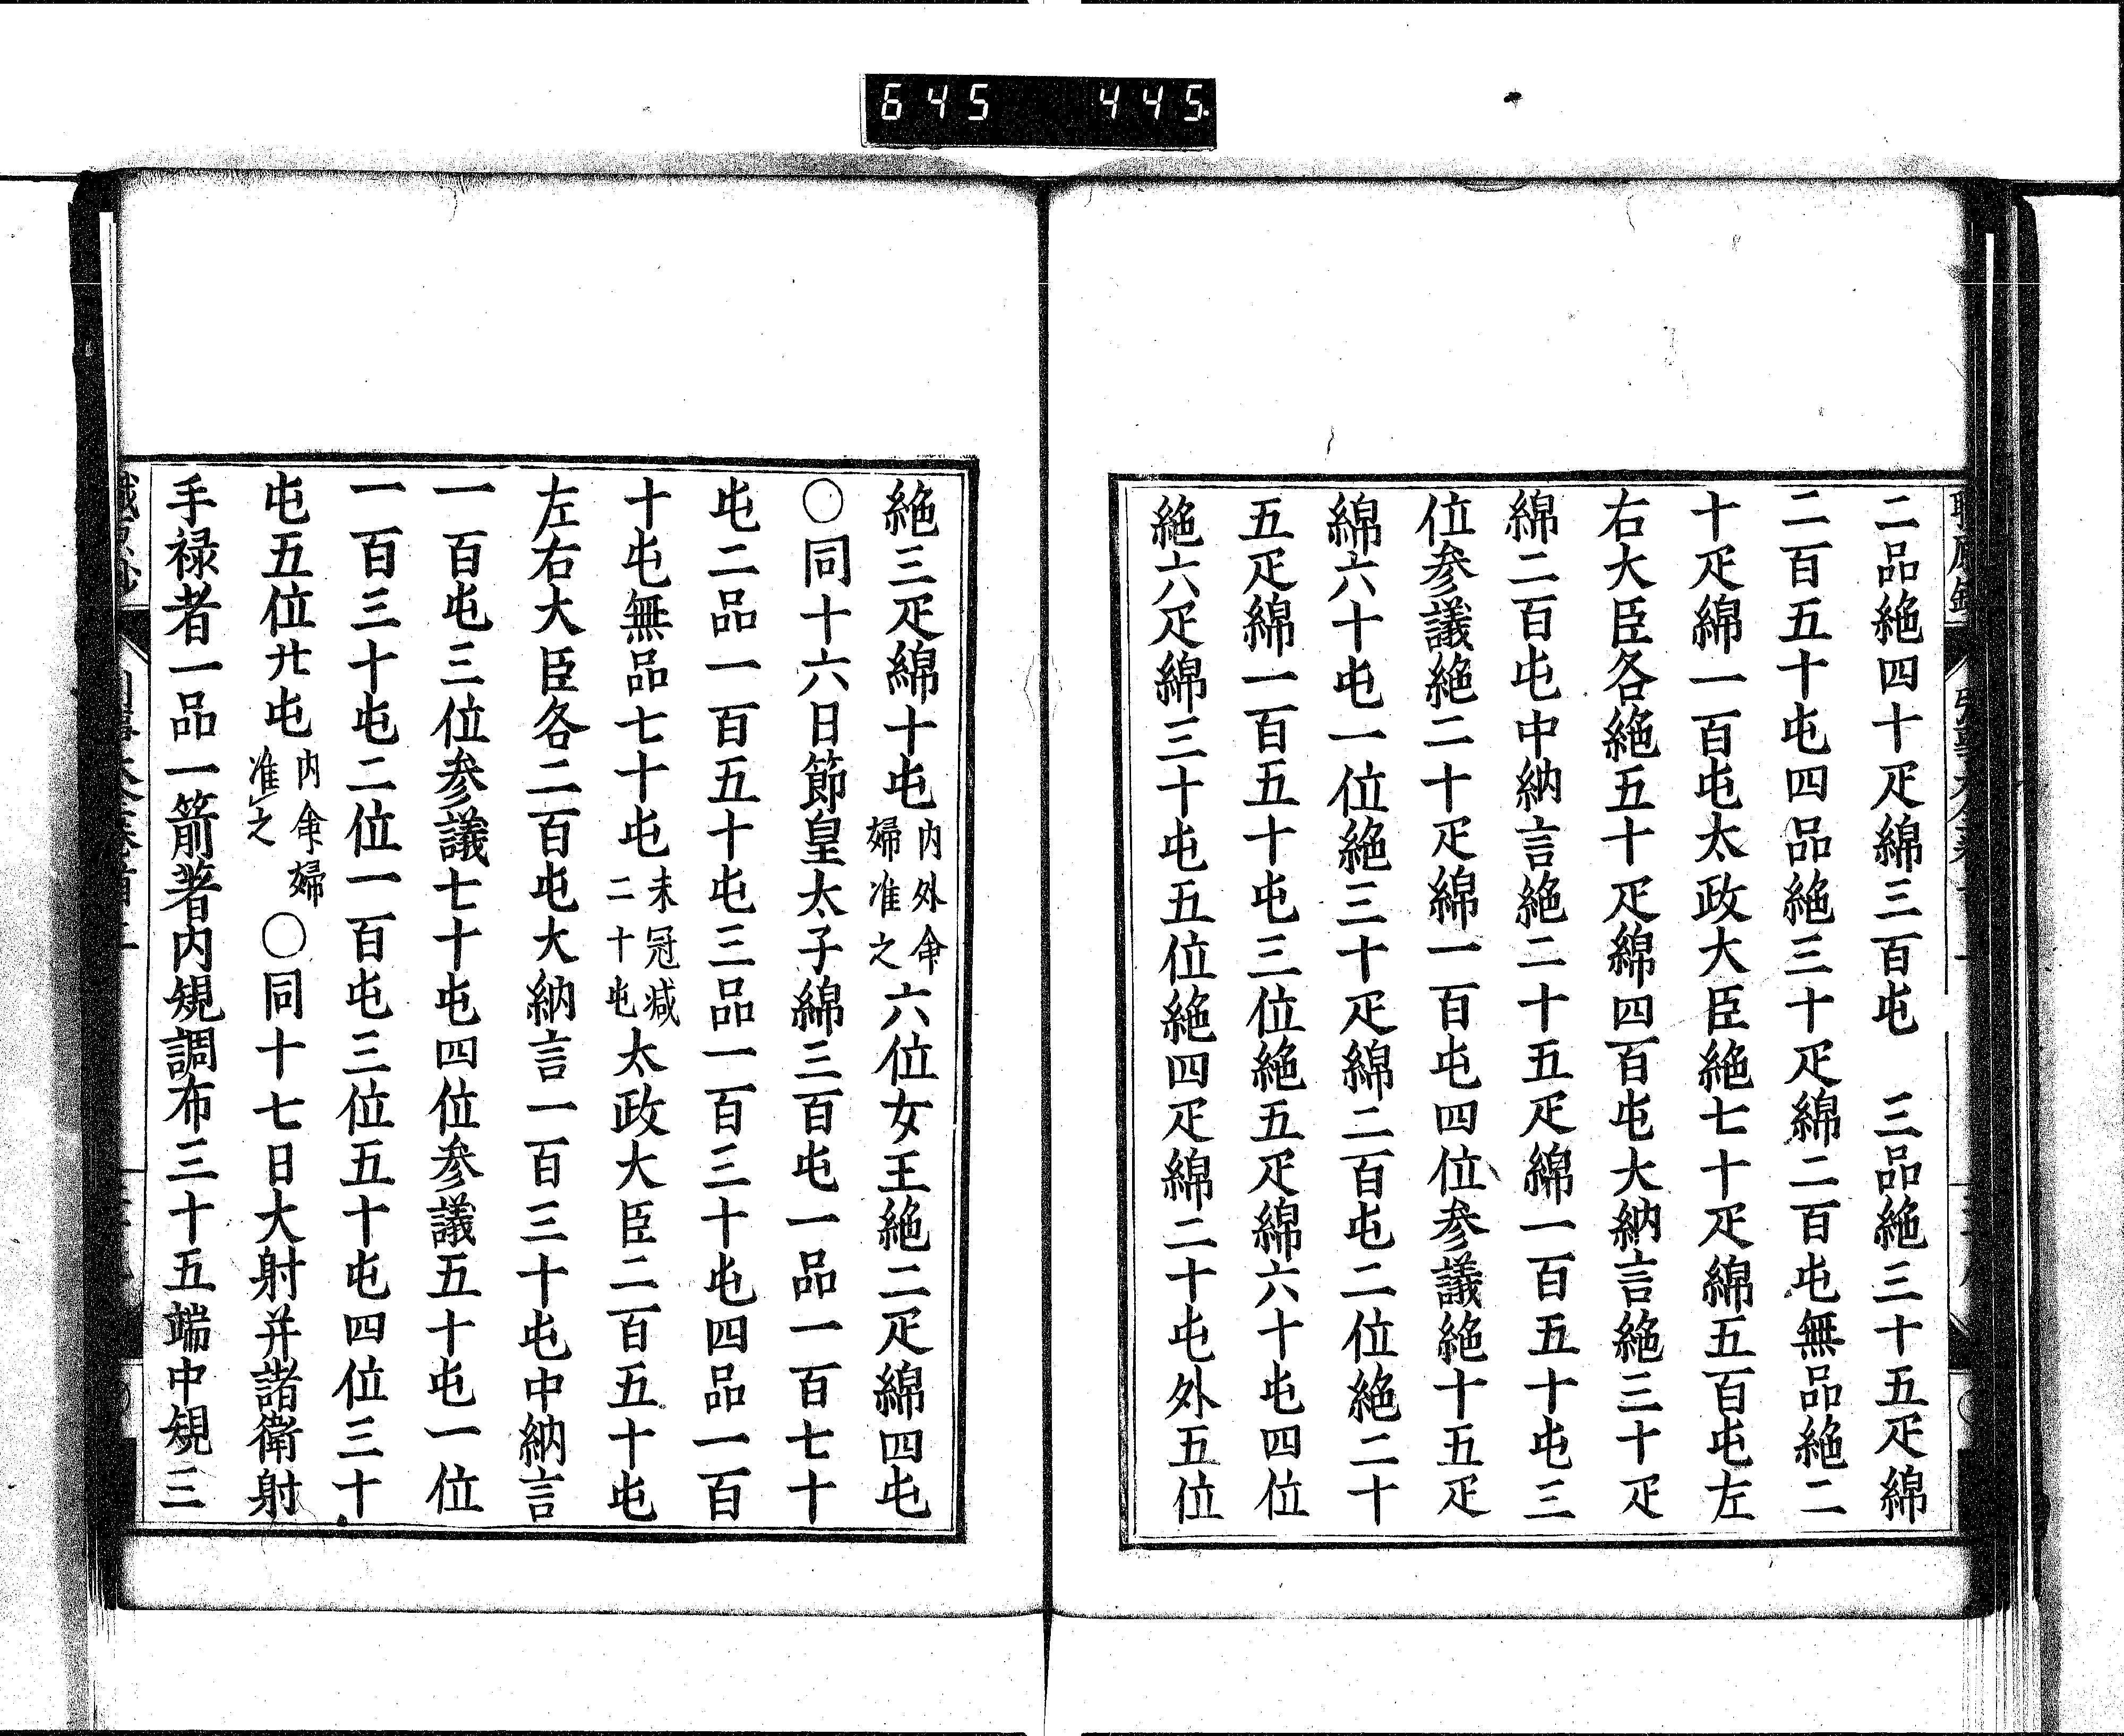 645 445.
二品絁四十疋綿三百屯　三品絁三十五疋綿
二百五十屯四品絁三十疋綿二百屯無品絁二
十疋綿一百屯太政大臣絁七十疋綿五百屯左
右大臣各絁五十疋綿四百屯大納言絁三十疋
綿二百屯中納言絁二十五疋綿一百五十屯三
位参議絁二十疋綿一百屯四位参議絁十五疋
綿六十屯一位絁三十疋綿二百屯二位絁二十
五疋綿一百五十屯三位絁五疋綿六十屯四位
絁六疋綿三十屯五位絁四疋綿二十屯外五位
絁三疋綿十屯内外命婦准之六位女王絁二疋綿四屯
○同十六日節皇太子綿三百屯一品一百七十
屯二品一百五十屯三品一百三十屯四品一百
十屯無品七十屯未冠减二十屯太政大臣二百五十屯
左右大臣各二百屯大納言一百三十屯中納言
一百屯三位参議七十屯四位参議五十屯一位
一百三十屯二位一百屯三位五十屯四位三十
屯五位廿屯内命婦准之○同十七日大射并諸衛射
手禄者一品一箭著内規調布三十五端中規三